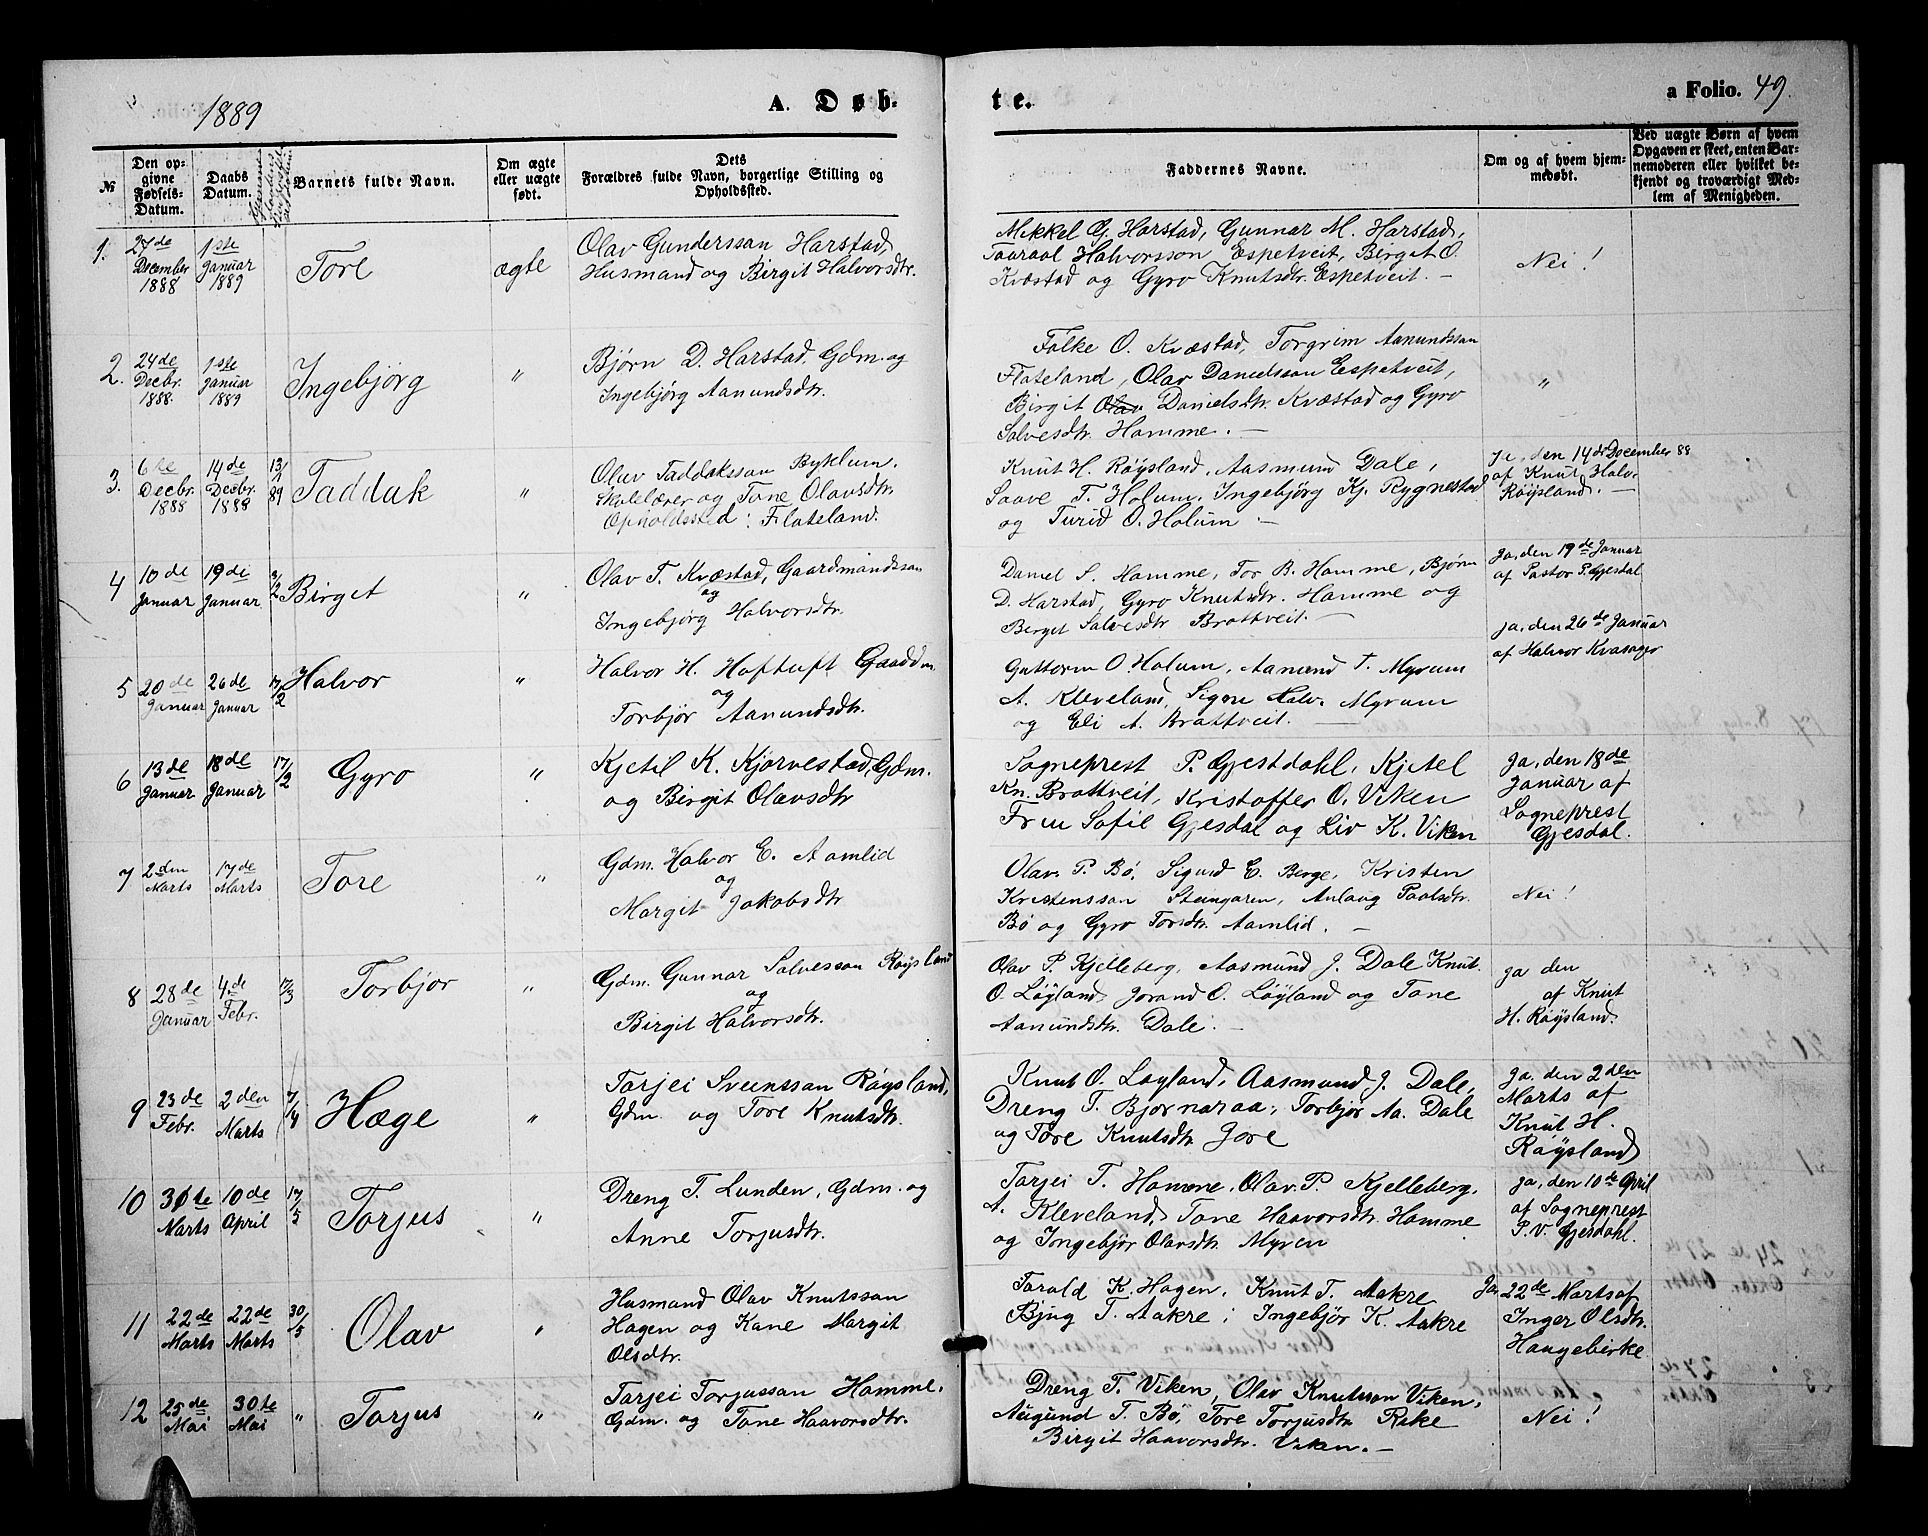 1889
A. Døb-
te.
a Folio. 49.
№
Den opgivne Fødsels-Datum.
Daabs Datum.
Barnets fulde Navn.
Om ægte eller uægte født.
Dets Forældres fulde Navn, borgerlige Stilling og Opholdssted.
Faddernes Navne.
Om og af hvem hjemmedøbt.
Ved uægte Børn af hvem Opgaven er skeet, enten Barnemoderen eller hvilket bekjendt og troværdigt Medlem af Menigheden.
1. 27de December 1888
1ste Januar 1889
Tore
ægte
Olav Gunderssan Harstad,
Husmand og Birgit Halvorsdtr.
Mikkel G. Harstad, Gunnar M. Harstad,
Taaraal Halvorsson Espetveit, Birgit O.
Kvæstad og Gyro Knutsdtr. Espetveit. –
Nei!
2. 24de Decbr. 1888.
1ste Januar 1889
Ingebjörg
"
Bjørn D. Harstad Gdm. og
Ingebjørg Aanundsdtr.
Folke O. Kvæstad, Torgrim Aanundssan
Flateland, Olav Danielssan Espetveit,
Birgit Olav Danielsdtr. Kvæstad og Gyro
Salvesdtr. Homme. –
"
3. 6te Decbr. 1888
14de Decbr. 1888
13/1 89
Taddak
"
Olav Taddakssan Byklum.
Skolelærer og Tone Olavsdtr.
Opholdssted: Flateland.
Knut H. Røysland, Aasmund Dale,
Saave T. Holum, Ingebjörg Kj. Rygnestad
og Turid O. Holum –
Ja, den 14de December 88
af Knut Halv.
Røysland. –
4 10de Januar
19de Januar
3/2
Birget
"
Olav T. Kvæstad, Gaardmandssan
og
Ingebjörg Halvorsdtr.
Daniel S. Homme, Tor B. Homme, Bjørn
D. Harstad, Gyro Knutsdtr. Homme og
Berget Salvesdtr Brottveit. –
Ja, den 19de Januar
af Pastor P. Gjesdal
5 20de Januar
26de Januar
17/2
Halvor
"
Halvor H. Hoftuft Gaardm.
og
Torbjør Aanundsdtr.
Guttorm O. Holum, Aanund T. Myrum
A. Kleveland, Signe Halv. Myrum
og Eli A. Brattveit. –
ja, den 26de Januar
af Halvor Kvasager
6 13de Januar
18de Januar
17/2
Gyro
"
Kjetil K. Kjørvestad, Gdm.
og Birgit Olavsdtr
Sogneprest P. Gjestdahl, Kjetel
Kn. Brottveit, Kristoffer O. Viken
Fru Sofie Gjesdal og Liv K. Viken
Ja, den 18de
Januar af
Sogneprest
Gjesdal.
7 2den Marts
17de Marts
Tore
"
Gdm. Halvor E. Aamlid
og
Margit Jakobsdtr
Olav P. Bø, Sigurd E. Berge, Kristen
Kristenssan Steingaren, Anlaug Paalsdtr.
Bø og Gyro Torsdtr. Aamlid. –
Nei!
8 28de Januar
4de Febr.
17/3
Torbjør
"
Gdm. Gunnar Salvessan Røysland
og
Birgit Halvorsdtr.
Olav P. Kjelleberg, Aasmund J. Dale Knut
O. Løyland, Jorand O. Løyland og Tone
Aanundsdtr. Dale. –
ja den
af Knut
H. Røysland.
9 23de Febr.
2den Marts
7/4
Hæge
"
Tarjei Sveinssan Røysland,
Gdm. og Tore Knutsdtr.
Knut O. Løyland, Aasmund J. Dale,
Dreng T. Bjørnaraa, Torbjør Aa. Dale
og Tore Knutsdtr. Jore
Ja, den 2den
Marts af
Knut H.
Røysland
10 30te Marts
10de April
17/5
Torjus
"
Dreng T. Lunden, Gdm. og
Anne Torjusdtr.
Tarjei T. Homme, Olav P Kjelleberg,
A. Kleveland, Tone Haavorsdtr. Homme
og Ingebjør Olavsdtr. Myren
Ja, den 10de April
af Sogneprest
P. V. Gjesdahl.
11 22de Marts
22de Marts
30/5
Olav
"
Husmand Olav Knutssan
Hagen og Kone Margit
Olsdtr.
Tarald K. Hagen, Knut T. Aakre
Bjug T. Aakre; Ingebjør K. Aakre
Ja, 22de Marts af
Inger Olsdtr.
Haugebirke
12 25de Mai
30te Mai
"
Torjus
"
Tarjei Torjussan Homme,
Gdm. og Tone Haavorsdtr.
Dreng T. Viken, Olav Knutsson Viken,
Augund T. Bø, Tore Torjusdtr Rike
Birgit Haavorsdtr. Viken. –
Nei!